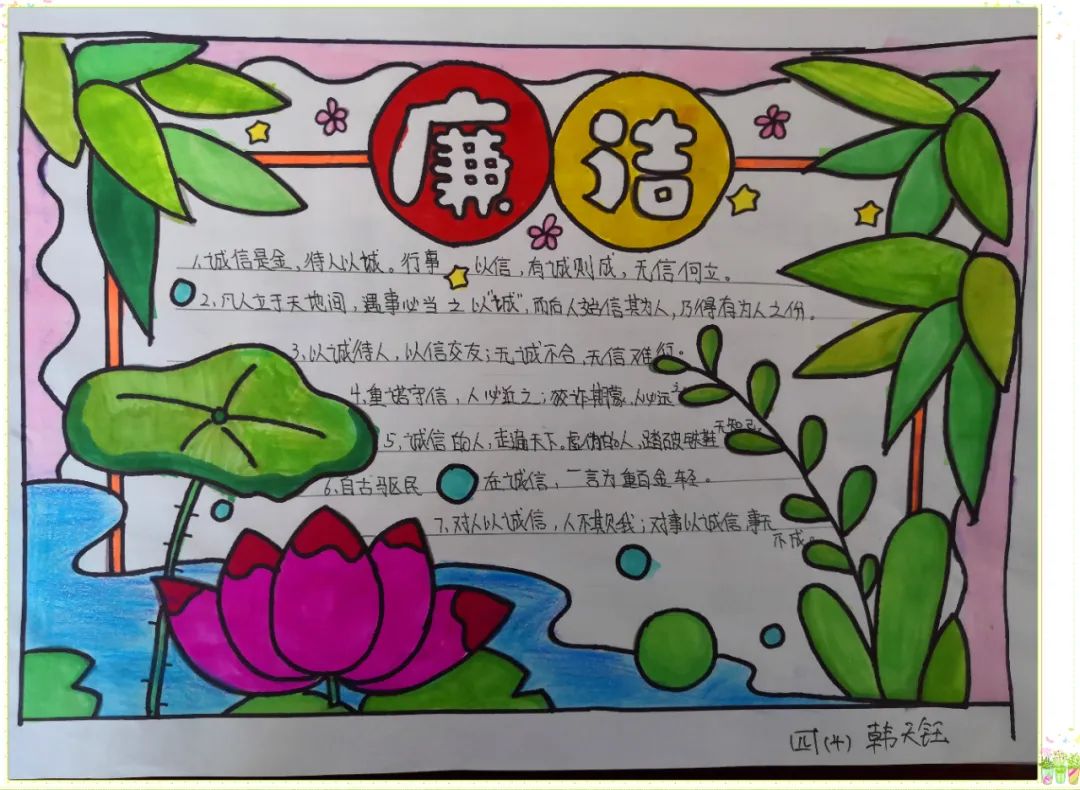 廉洁
1、诚信是金,待人以诚。行事以信,有诚则成,无信何立。
2、凡人立于天地间,遇事必当之以"诚",而后人能信其为人,乃得存为人之份。
3、以诚待人,以信交友;无诚不合,无信难行。
4、重诺守信,人必近之;狡诈期蒙,人必远之
5、诚信的人,走遍天下,虚伪的人,踏破铁鞋无知己
6、自古驱民在诚信,一言为重百金轻。
7、对人以诚信,人不欺我;对事以诚信,事无
不成。
四(4) 韩天钰